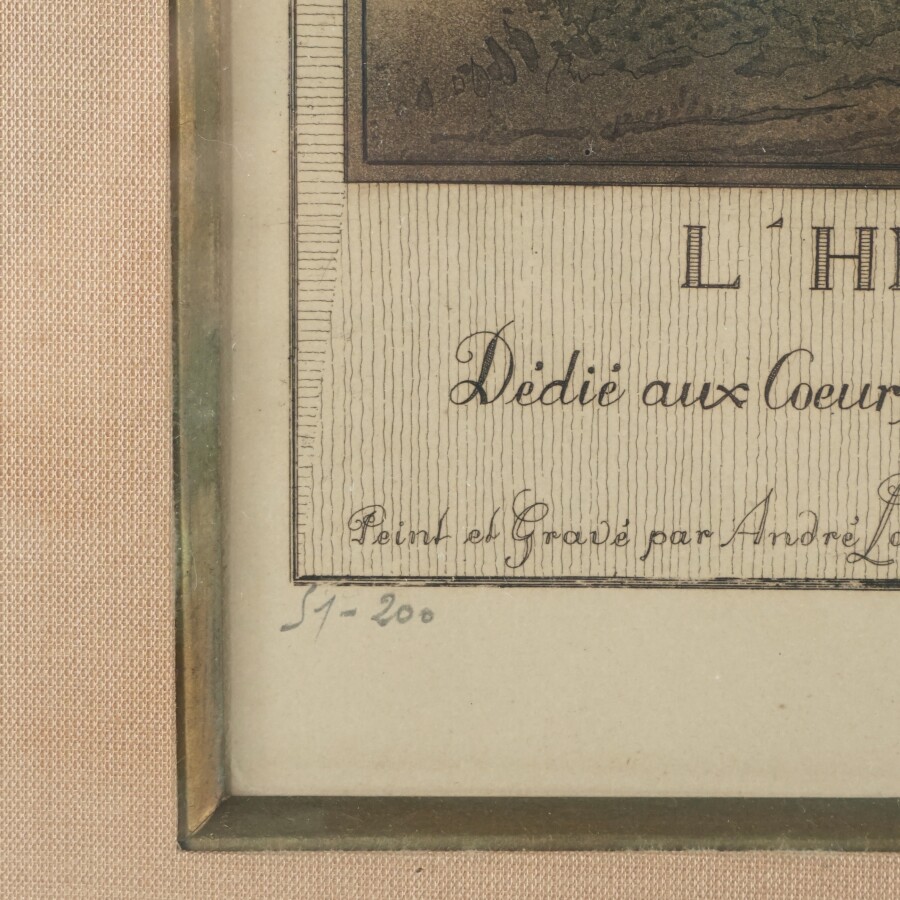 L'H
Dédié aux Coeurs
Peint et Gravé par André
51-200